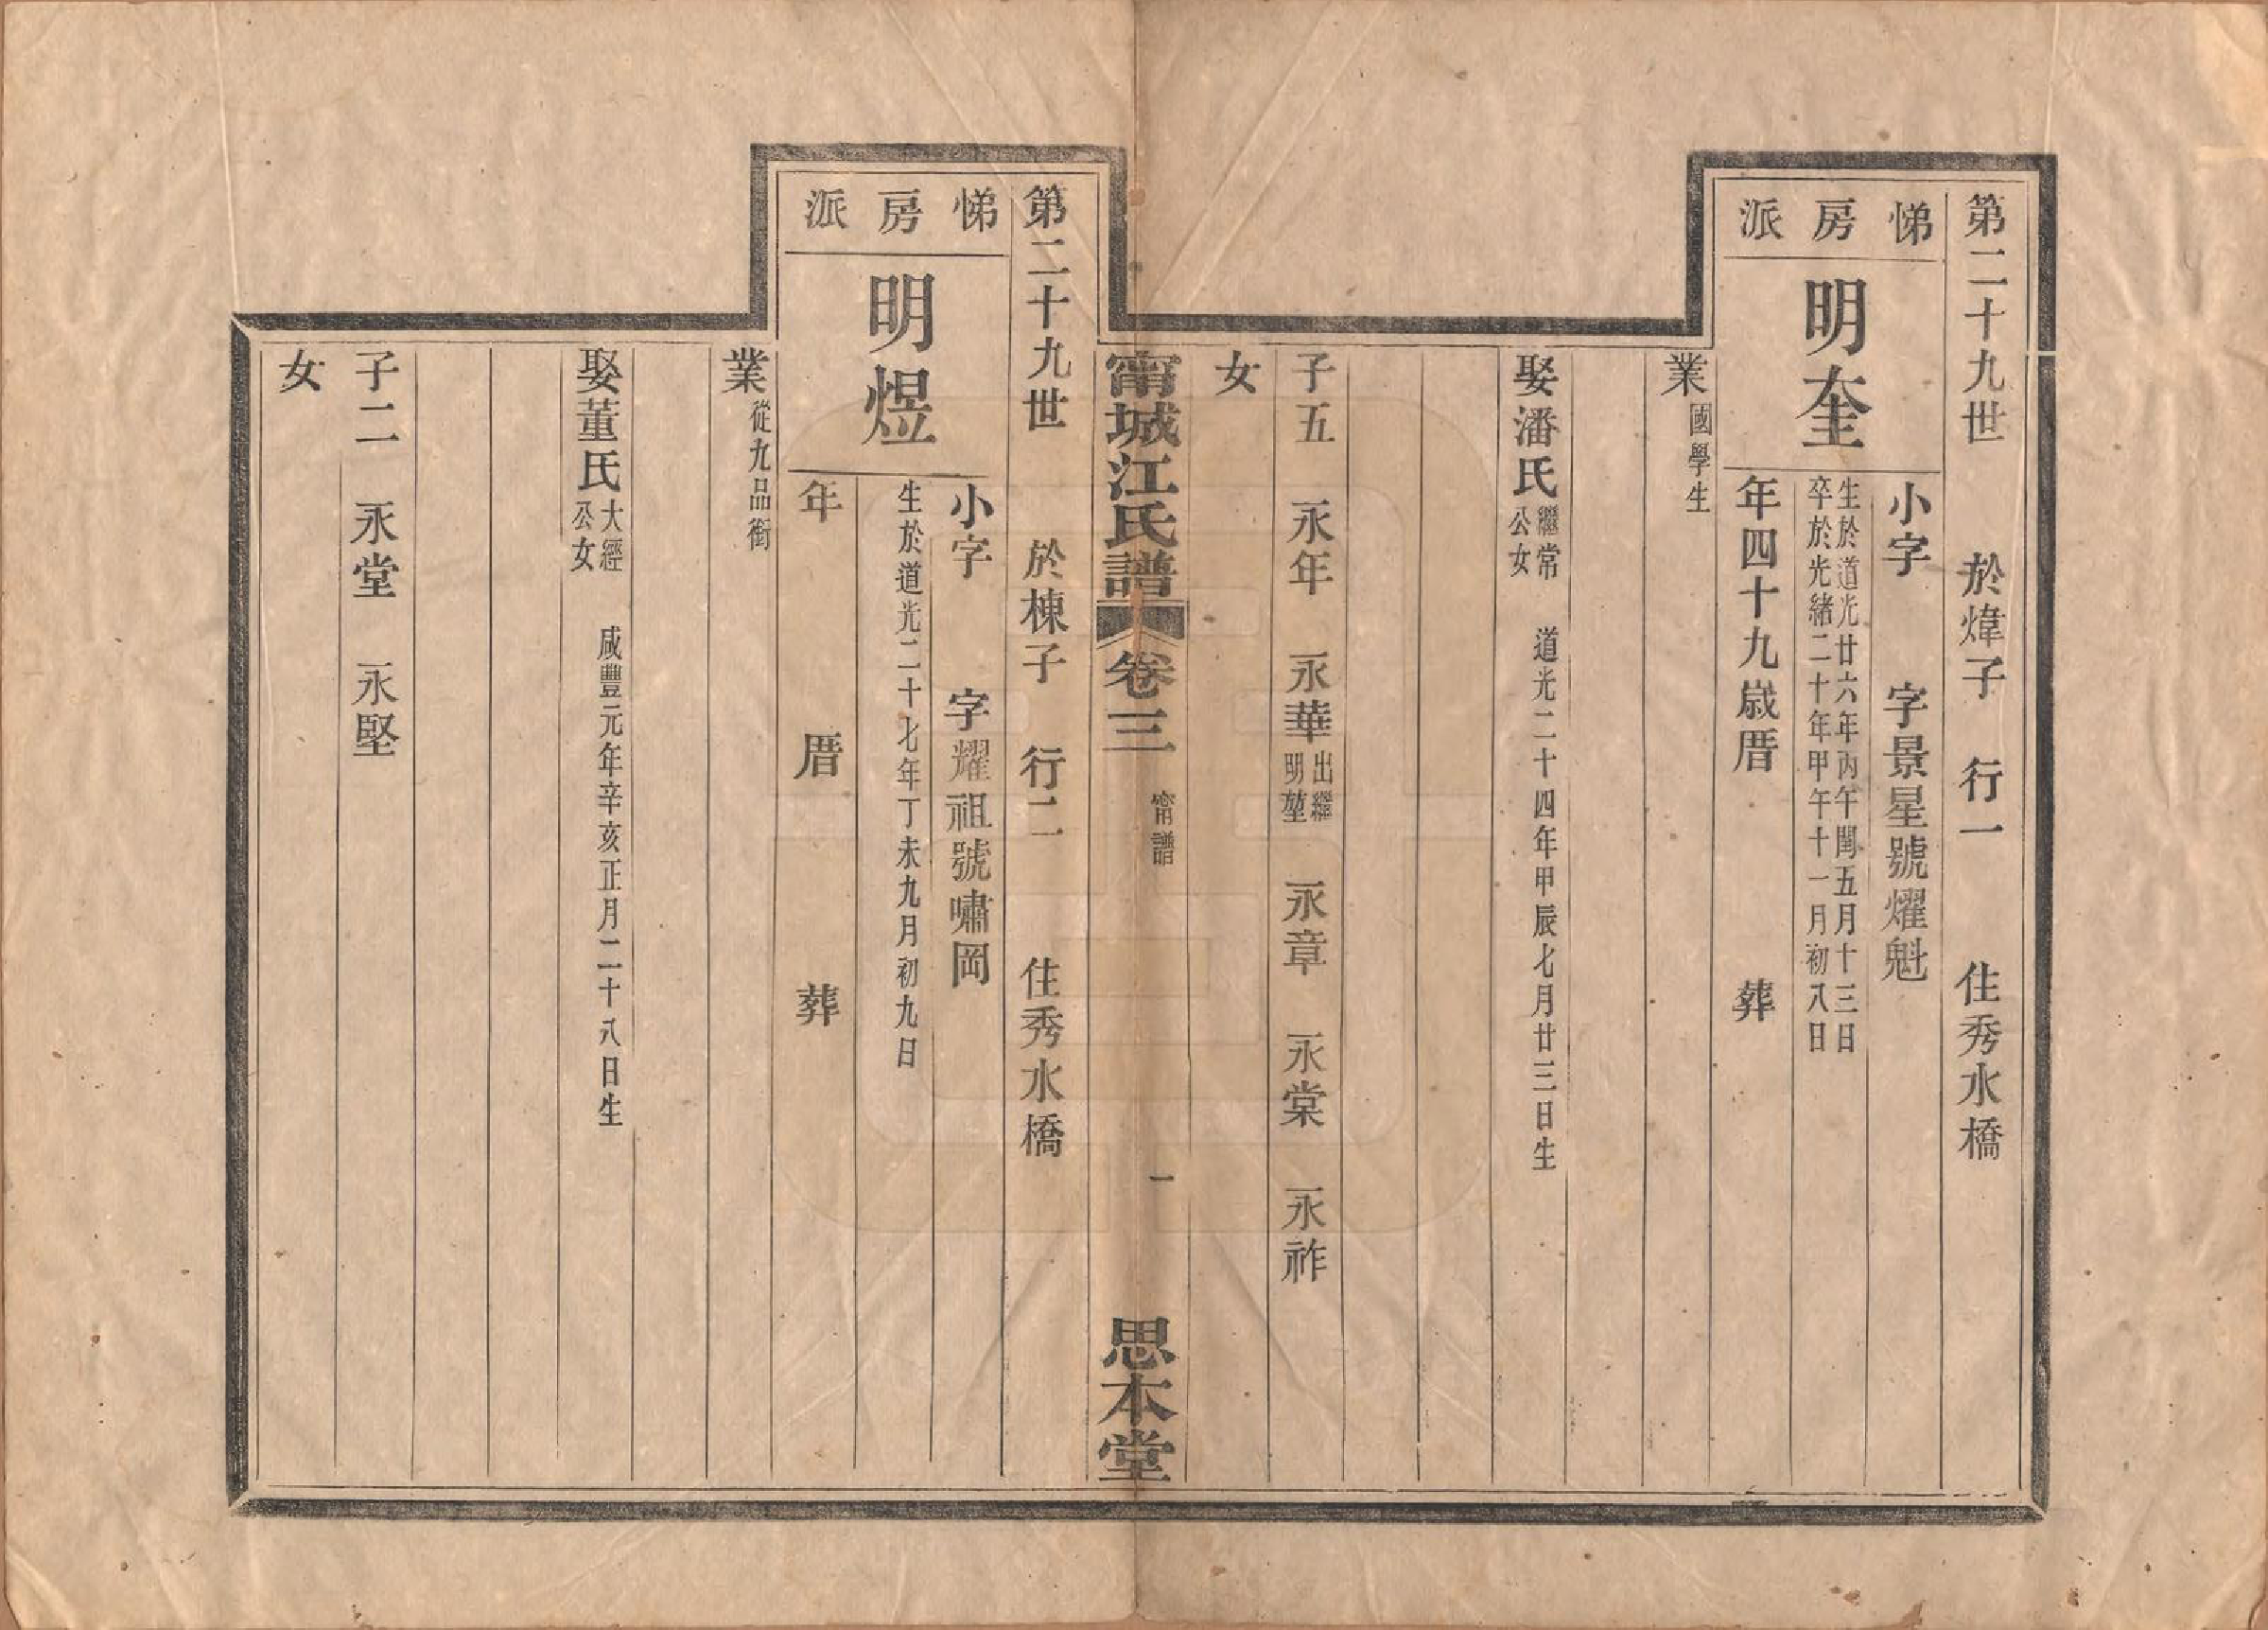 第二十九世　於煒子　行一　住秀水橋
悌房派
明奎
小字　字景星號燿魁
生於道光廿六年丙午閏五月十三日
卒於光緒二十年甲午十一月初八日
年四十九嵗厝　葬
業國學生
娶潘氏繼常公女　道光二十四年甲辰七月廿三日生
子五　永年　永華出繼明堃　永章　永棠　永祚
女
甯城江氏譜　卷三　甯譜　一　思本堂
第二十九世　於棟子　行二　住秀水橋
悌房派
明煜
小字　字耀祖號嘯岡
生於道光二十七年丁未九月初九日
年　厝　葬
業從九品銜
娶董氏大經公女　咸豐元年辛亥正月二十八日生
子二　永堂　永堅
女